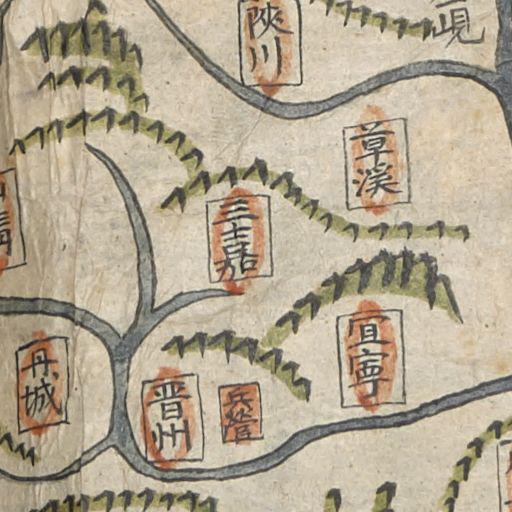 陜川
峴
草溪
三嘉
宜寧
丹城
晋州
兵營